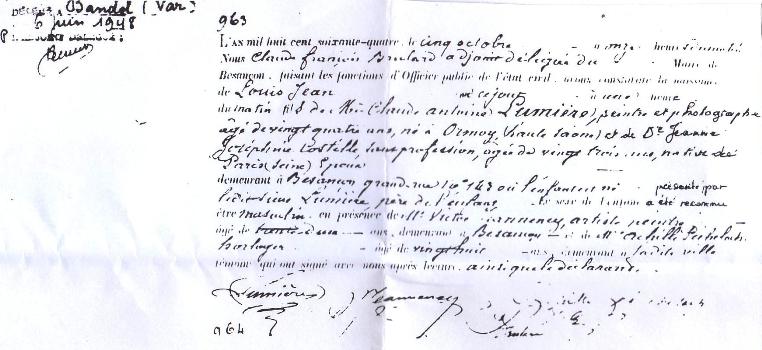 DÉCÉDÉ A Bandol (Var)
6 juin 1948
963
L'AN mil huit cent soixante-quatre, le cinq octobre à onze heures
Nous Claude françois Brulard adjoint délégué du Maire de
Besançon, faisant les fonctions d'Officier public de l'état civil, avons constaté la naissance
de Louis Jean né ce jour à une heure
du matin fils de Mr Claude antoine Lumière, peintre et photographe
âgé de vingt quatre ans, né à Ormoy (haute saône) et de De Jeanne
Joséphine Costille sans profession, âgée de vingt trois ans, native de
Paris (Seine) Epoux
demeurant à Besançon grande rue No 143 où l'enfant est né présenté par
ledit sieur Lumière père de l'enfant Le sexe de l'enfant a été reconnu
être masculin, en présence de Mr Victor Jeanneney, artiste peintre
âgé de trente deux ans, demeurant à Besançon et de Mr Achille
horloger âgé de vingt huit ans, demeurant à ladite ville
témoins qui ont signé avec nous après lecture, ainsi que le déclarant.
Lumière Jeanneney
964